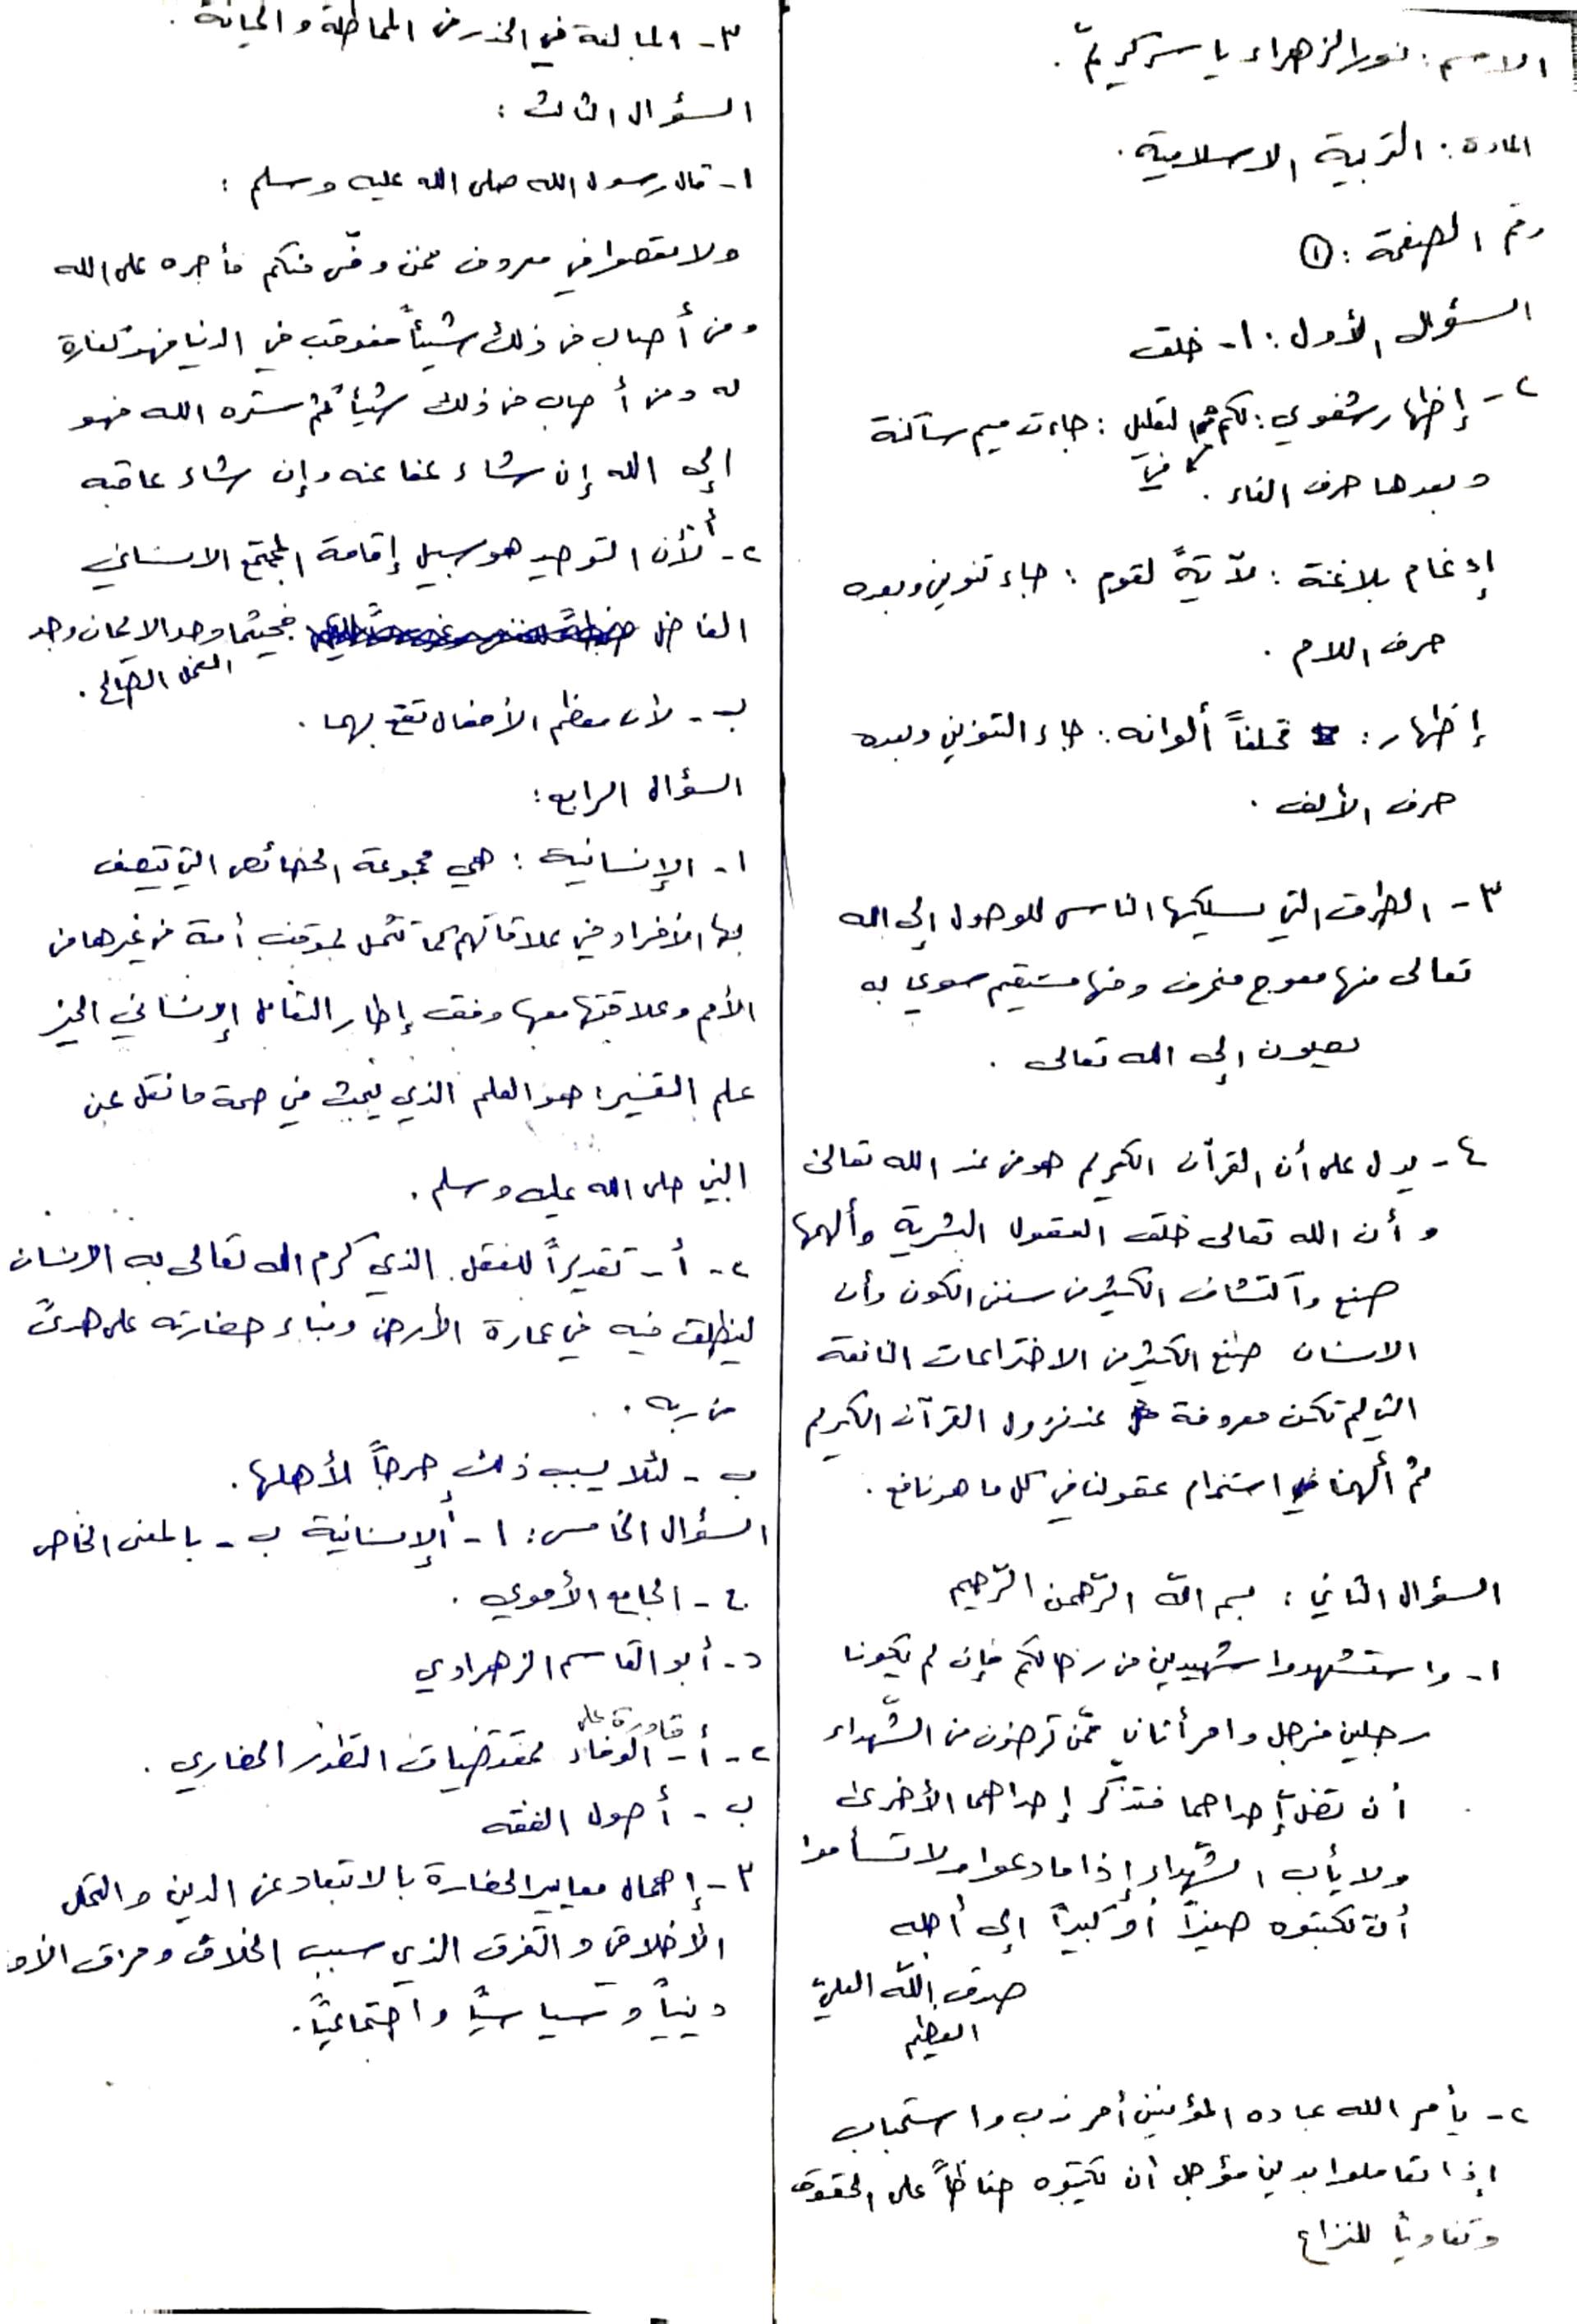 الاسم: نور الزهراء ياسر كريّم.
المادة: التربية الاسلامية.
رقم الصفحة: ①
السؤال الأول: ١- خلق
٢- إظهار شفوي: لكم فيها لتعليل: جاءت ميم ساكنة
وبعدها حرف الفاء.
إدغام بلاغنة: لآيةً لقوم: جاء تنوين وبعده
حرف اللام.
إظهار: مختلفاً ألوانه: جاء التنوين وبعده
حرف الألف.
٣- الطرق التي يسلكها الناس للوصول إلى الله
تعالى منها معوج منحرف ومنها مستقيم سوي به
يصلون إلى الله تعالى.
٤- يدل على أن القرآن الكريم هو من عند الله تعالى
وأن الله تعالى خلق العقول البشرية وألهمها
صنع وآكتشاف الكثير من سنن الكون وأن
الانسان صنع الكثير من الاختراعات النافعة
التي لم تكن معروفة عند نزول القرآن الكريم
ثم ألهمنا استخدام عقولنا في كل ما هو نافع.
السؤال الثاني: بسم اللّه الرّحمن الرّحيم
١- واستشهدوا شهيدين من رجالكم فإن لم يكونا
رجلين فرجل وامرأتان ممّن ترضون من الشّهداء
أن تضلّ إحداهما فتذكّر إحداهما الأخرى
ولا يأب الشّهداء إذا ما دعوا ولا تسأموا
أن تكتبوه صغيراً أو كبيراً إلى أجله
صدق اللّه العليّ
العظيم
٢- يأمر الله عباده المؤمنين أمر ندب واستحباب
إذا تعاملوا بدين مؤجل أن تكتبوه حفاظاً على الحقوق
وتفادياً للنزاع
٣- المبالغة في الحذر من المماطلة والخيانة.
السؤال الثالث:
١- قال رسول الله صلى الله عليه وسلم:
ولا تعصوا في معروف فمن وفّى منكم فأجره على الله
ومن أصاب من ذلك شيئاً فعوقب في الدنيا فهو كفارة
له ومن أصاب من ذلك شيئاً ثم ستره الله فهو
إلى الله إن شاء عفا عنه وإن شاء عاقبه
٢- أ- لأن التوحيد هو سبيل إقامة المجتمع الانساني
الفاضل فحيثما وجد الايمان وجد
العمل الصالح.
ب- لأن معظم الأفعال تقع بهما.
السؤال الرابع:
١- الإنسانية: هي مجموعة الخصائص التي تتصف
بها الأفراد في علاقاتهم كما تشمل لموقف أمة من غيرها من
الأمم وعلاقتها معها وفق إطار التعامل إلإنساني الخير
علم التفسير: هو العلم الذي يبحث في صحة ما نقل عن
النبي صلى الله عليه وسلم.
٢- أ- تقديراً للعقل الذي كرم الله تعالى به الانسان
لينطلق فيه في عمارة الأرض وبناء حضارته على هدىً
من ربه.
ب- لئلا يسبب ذلك حرجاً لأهلها.
السؤال الخامس: ١- أ- الإنسانية ب- بالمعنى الخاص
ج- الجامع الأموي.
د- أبو القاسم الزهراوي
٢- أ- قادرة على الوفاء لمقتضيات التطور الحضاري.
ب- أصول الفقه
٣- إهمال معايير الحضارة بالابتعاد عن الدين والتحلل
الأخلاقي والتفرق الذي سبب الخلاف وفراق
دينياً وسياسياً واجتماعياً.